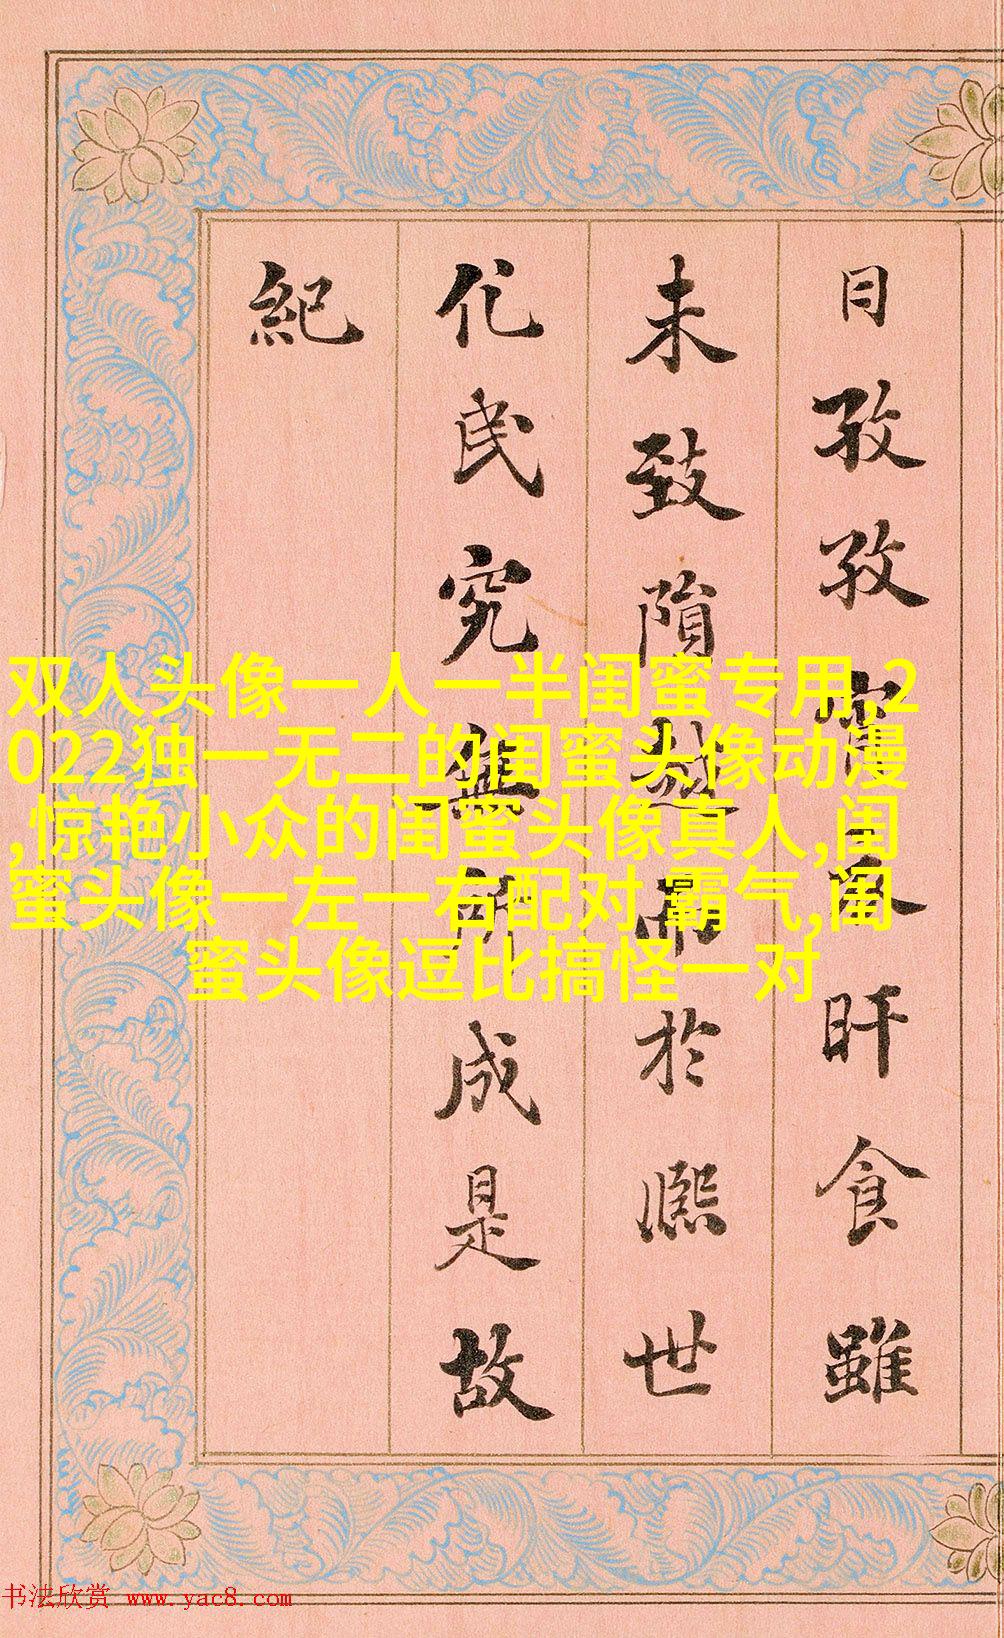 日孜孜宵衣旰食雖
未致隕越而於熙世
化民究無所成是故
紀
双人头像一人一半闺蜜专用,2
022独一无二的闺蜜头像动漫
,惊艳小众的闺蜜头像真人,闺
蜜头像一左一右配对,霸气,闺
蜜头像逗比搞怪一对
书法欣赏 www.yac8.com